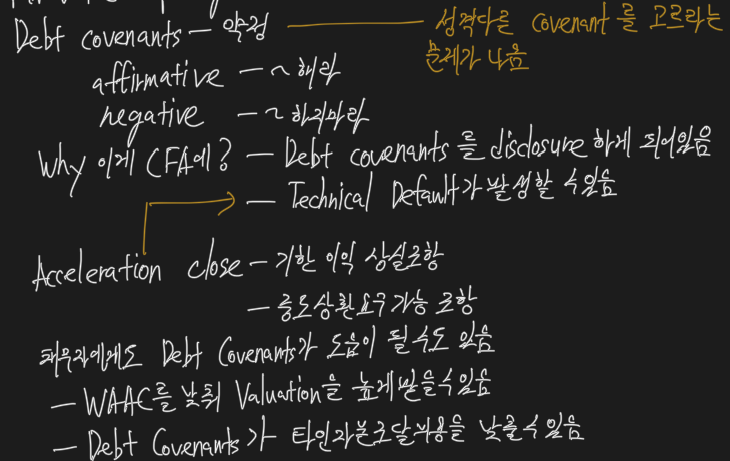 Debt covenants - 약정 성격다른 Covenant를 고르라는
문제가 나옴
affirmative - ~해라
negative - ~하지마라
Why 이게 CFA에? - Debt covenants를 disclosure 하게 되어있음
- Technical Default가 발생할 수 있음
Acceleration close - 기한 이익 상실조항
- 중도상환요구가능 조항
채무자에게도 Debt Covenants가 도움이 될 수도 있음
- WAAC를 낮춰 Valuation을 높게받을수있음
- Debt Covenants가 타인자본조달비용을 낮출수 있음